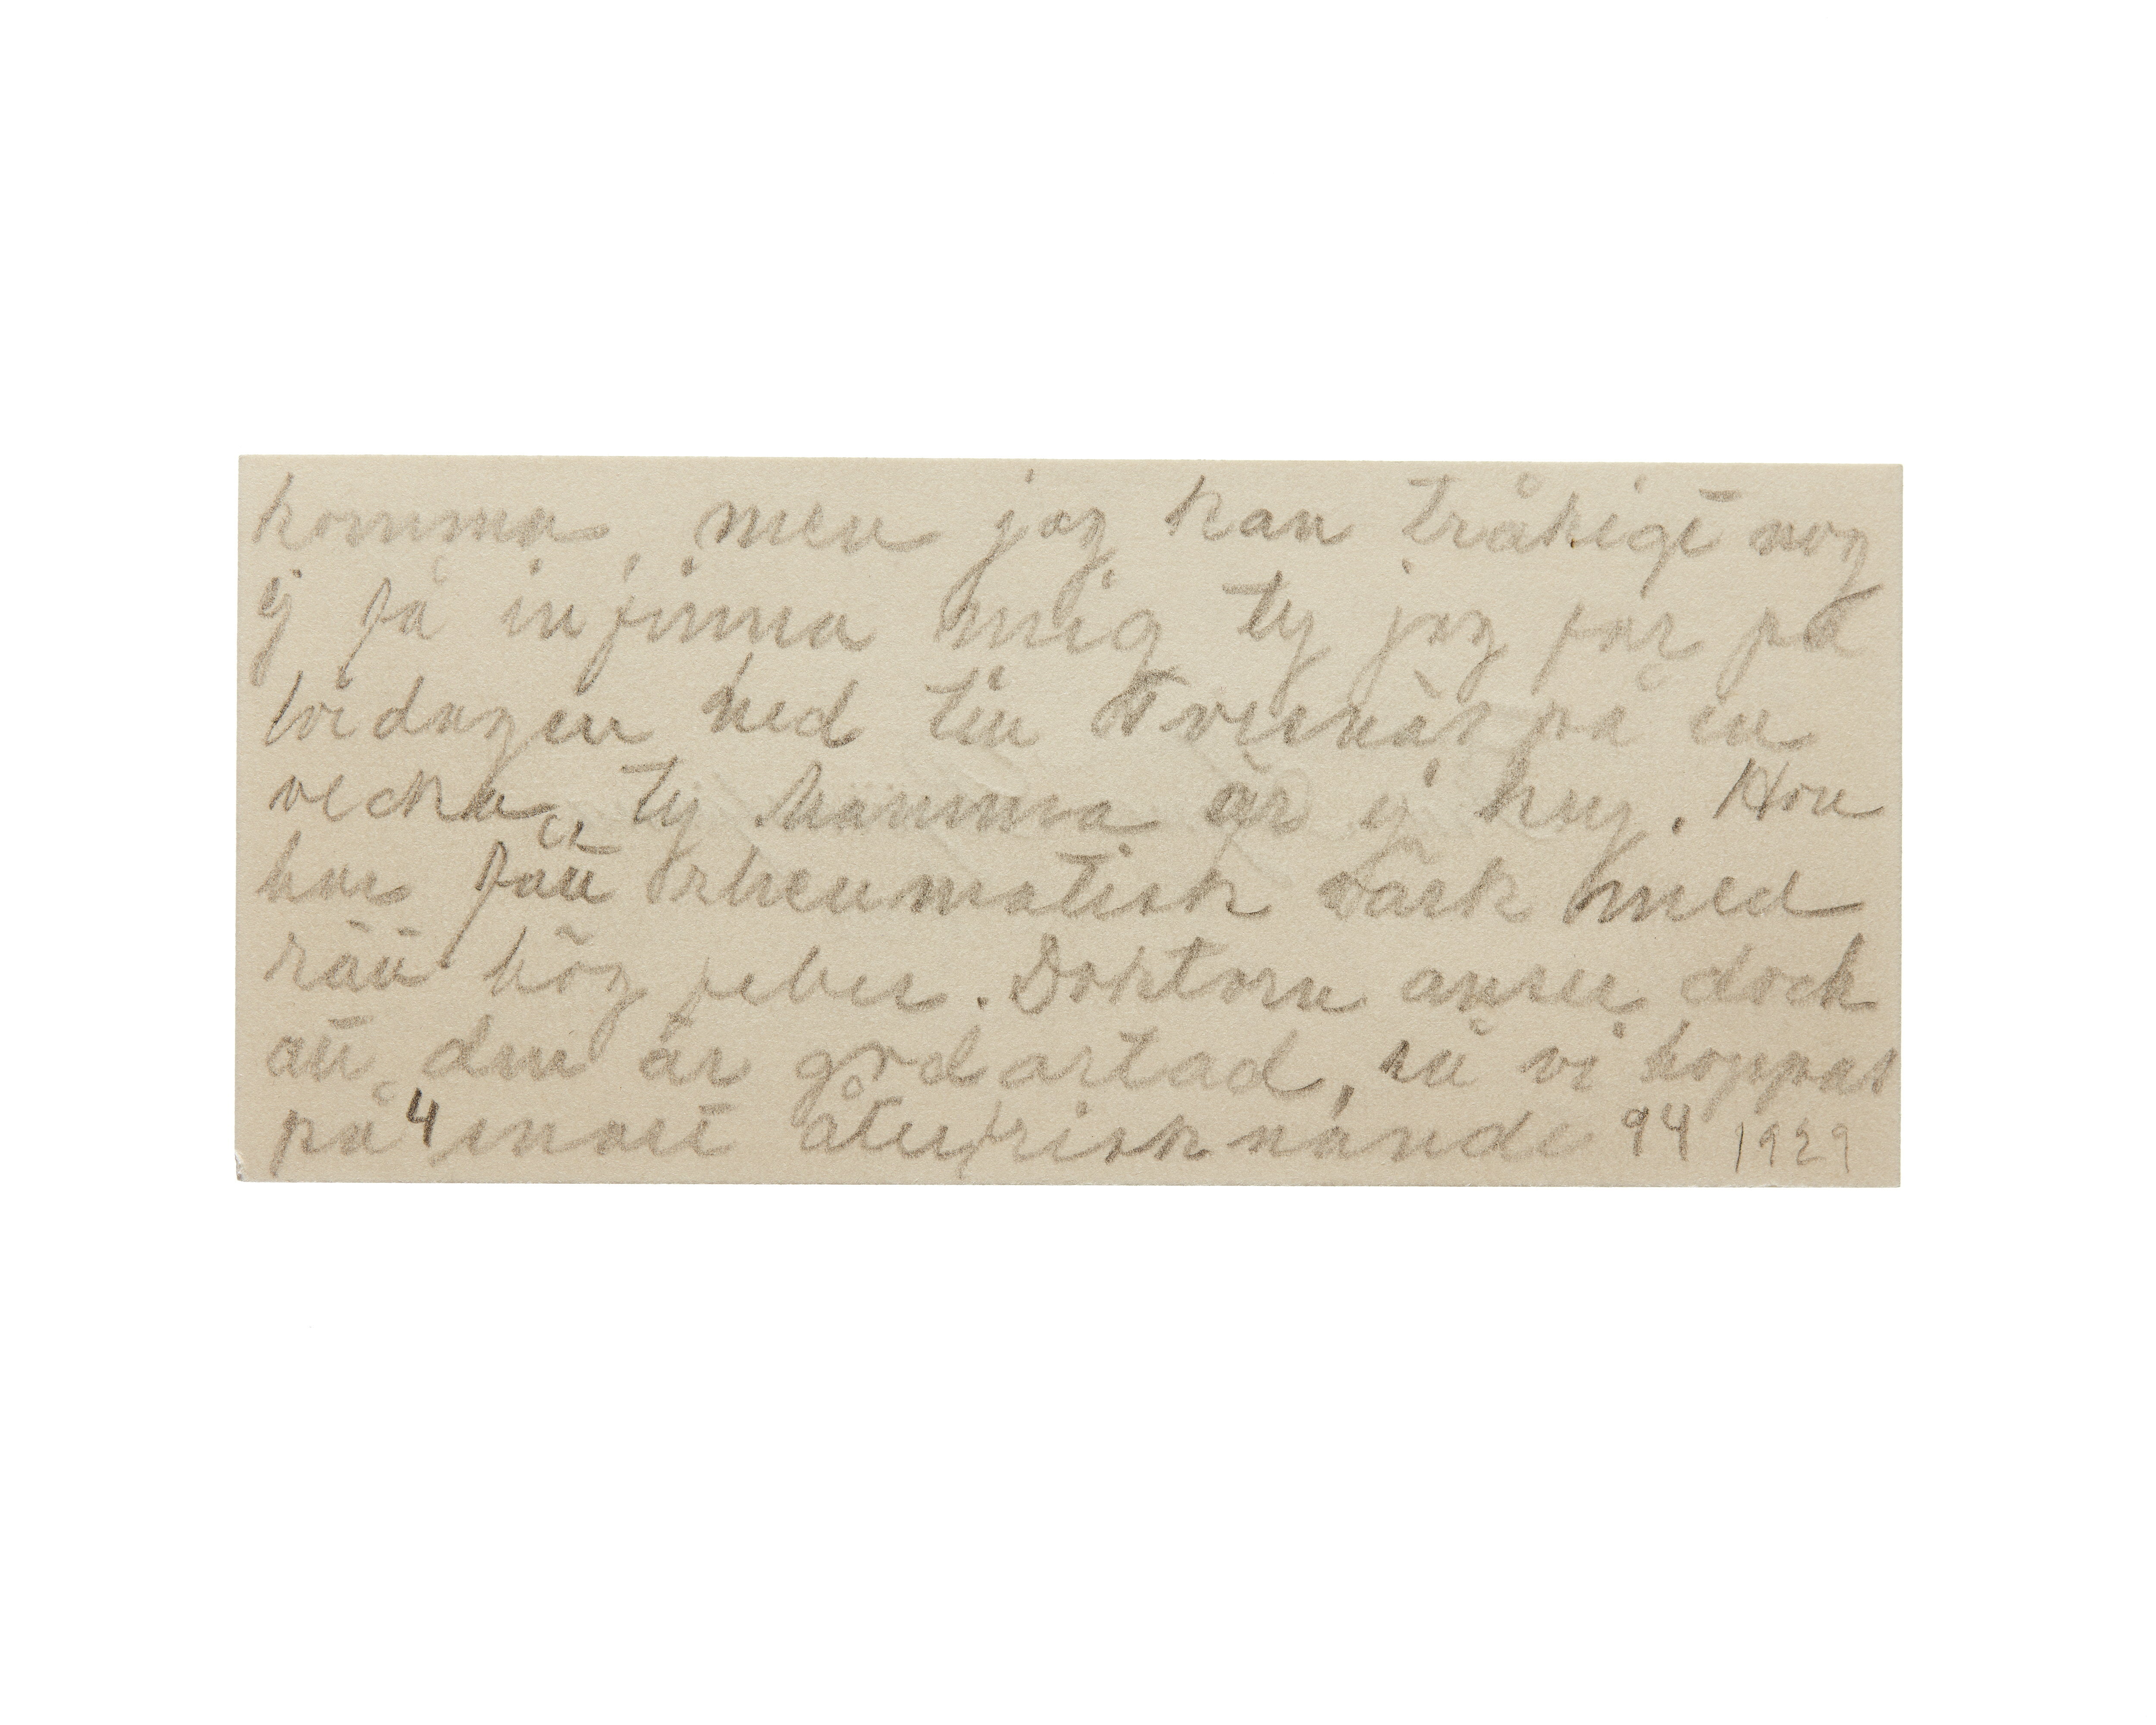 komma, men jag kan tråkigt nog
ej få infinna mig ty jag far på
lördagen ned till Tvernäs på en
vecka, ty mamma är ej kry. Hon
har fått rheumatisk värk med
rätt hög feber. Doktorn anser dock
att den är godartad, så vi hoppas
på 4 snart återfrisknande 94 1929